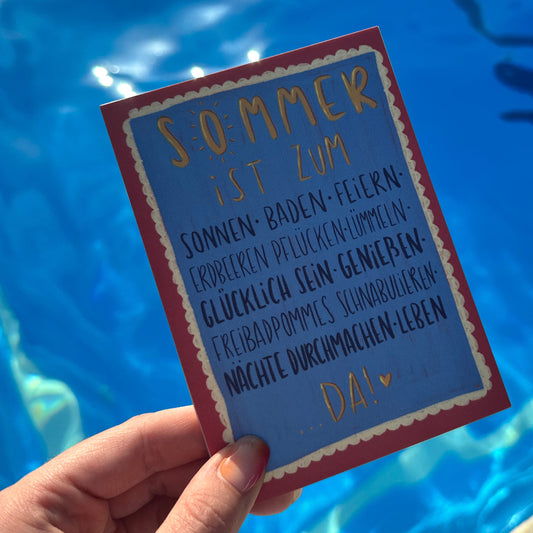 SOMMER
iST ZUM
SONNEN · BADEN · FEiERN ·
ERDBEEREN PFLÜCKEN · LÜMMELN ·
GLÜCKLiCH SEiN · GENiEẞEN ·
FREiBADPOMMES SCHNABULiEREN ·
NÄCHTE DURCHMACHEN · LEBEN
... DA!